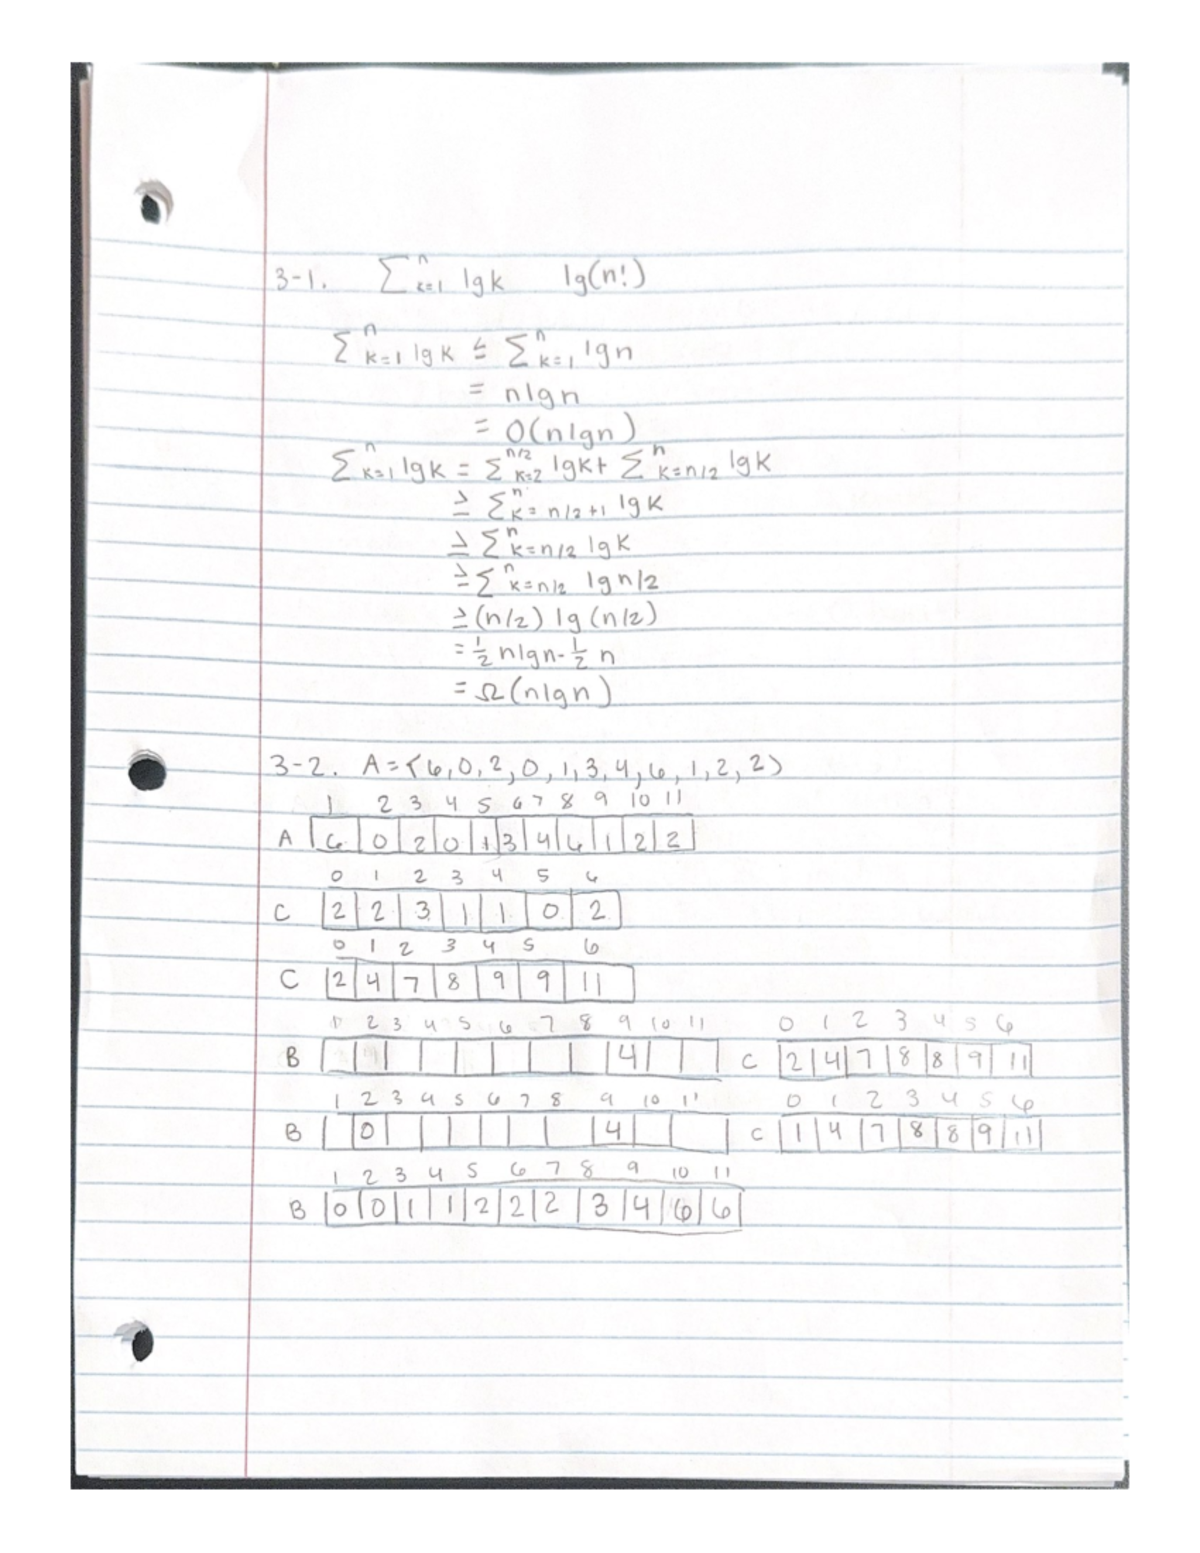 3-1. ∑ⁿₖ₌₁ lg k lg(n!)
∑ⁿ k=1 lg k ≤ ∑ⁿ k=1 lg n
= n lg n
= O(n lg n)
∑ⁿ k=1 lg k = ∑^n/2 k=2 lg k + ∑ⁿ k=n/2 lg k
≥ ∑ⁿ k=n/2+1 lg k
≥ ∑ⁿ k=n/2 lg k
≥ ∑ⁿ k=n/2 lg n/2
≥ (n/2) lg (n/2)
= 1/2 n lg n - 1/2 n
= Ω(n lg n)
3-2. A = {6, 0, 2, 0, 1, 3, 4, 6, 1, 2, 2}
1 2 3 4 5 6 7 8 9 10 11
A 6 0 2 0 1 3 4 6 1 2 2
0 1 2 3 4 5 6
C 2 2 3 1 1 0 2
0 1 2 3 4 5 6
C 2 4 7 8 9 9 11
1 2 3 4 5 6 7 8 9 10 11 0 1 2 3 4 5 6
B 4 C 2 4 7 8 8 9 11
1 2 3 4 5 6 7 8 9 10 11 0 1 2 3 4 5 6
B 0 4 C 1 4 7 8 8 9 11
1 2 3 4 5 6 7 8 9 10 11
B 0 0 1 1 2 2 2 3 4 6 6